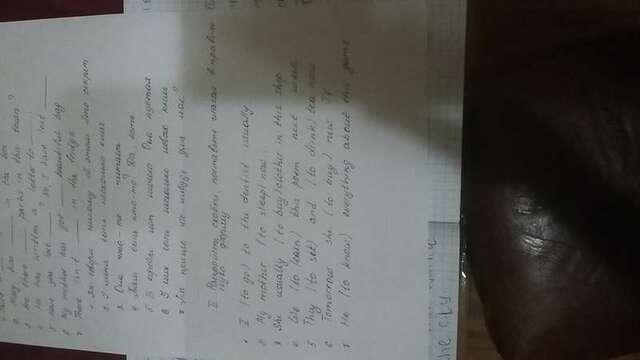 Mary has ____ in the box
Are there ____ parks in this town?
He has written a letter to ____
Have you lost ____? No, I have lost ____
My mother has got ____ beautiful bag
There isn't ____ in the fridge
1 Не говори никому об этом. Это секрет
2 У меня есть несколько книг
3 Она что-то читает
4 Там есть кто-то? Да, есть
5 В коробке нет ничего Она пустая
6 У них есть несколько новых книг
7 Ты что-нибудь для нас?
II Раскройте скобки, поставьте глагол в правиль-
ную форму
1 I (to go) to the dentist usually
2 My mother (to sleep) now
3 She usually (to buy) clothes in this shop
4 We (to learn) this poem next week
5 They (to set) and (to drink) tea now
6 Tomorrow she (to buy) new TV
7 He (to know) everything about this game
the city